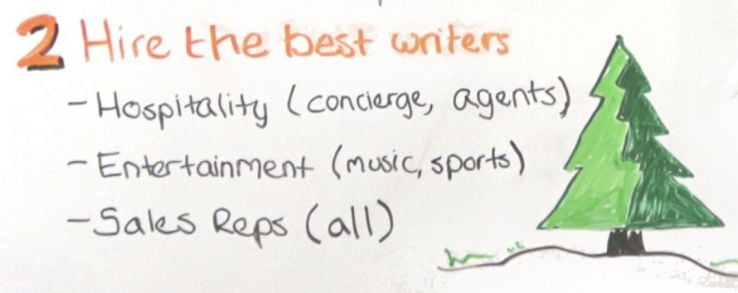 2 Hire the best writers
- Hospitality (concierge, agents)
- Entertainment (music, sports)
- Sales Reps (all)